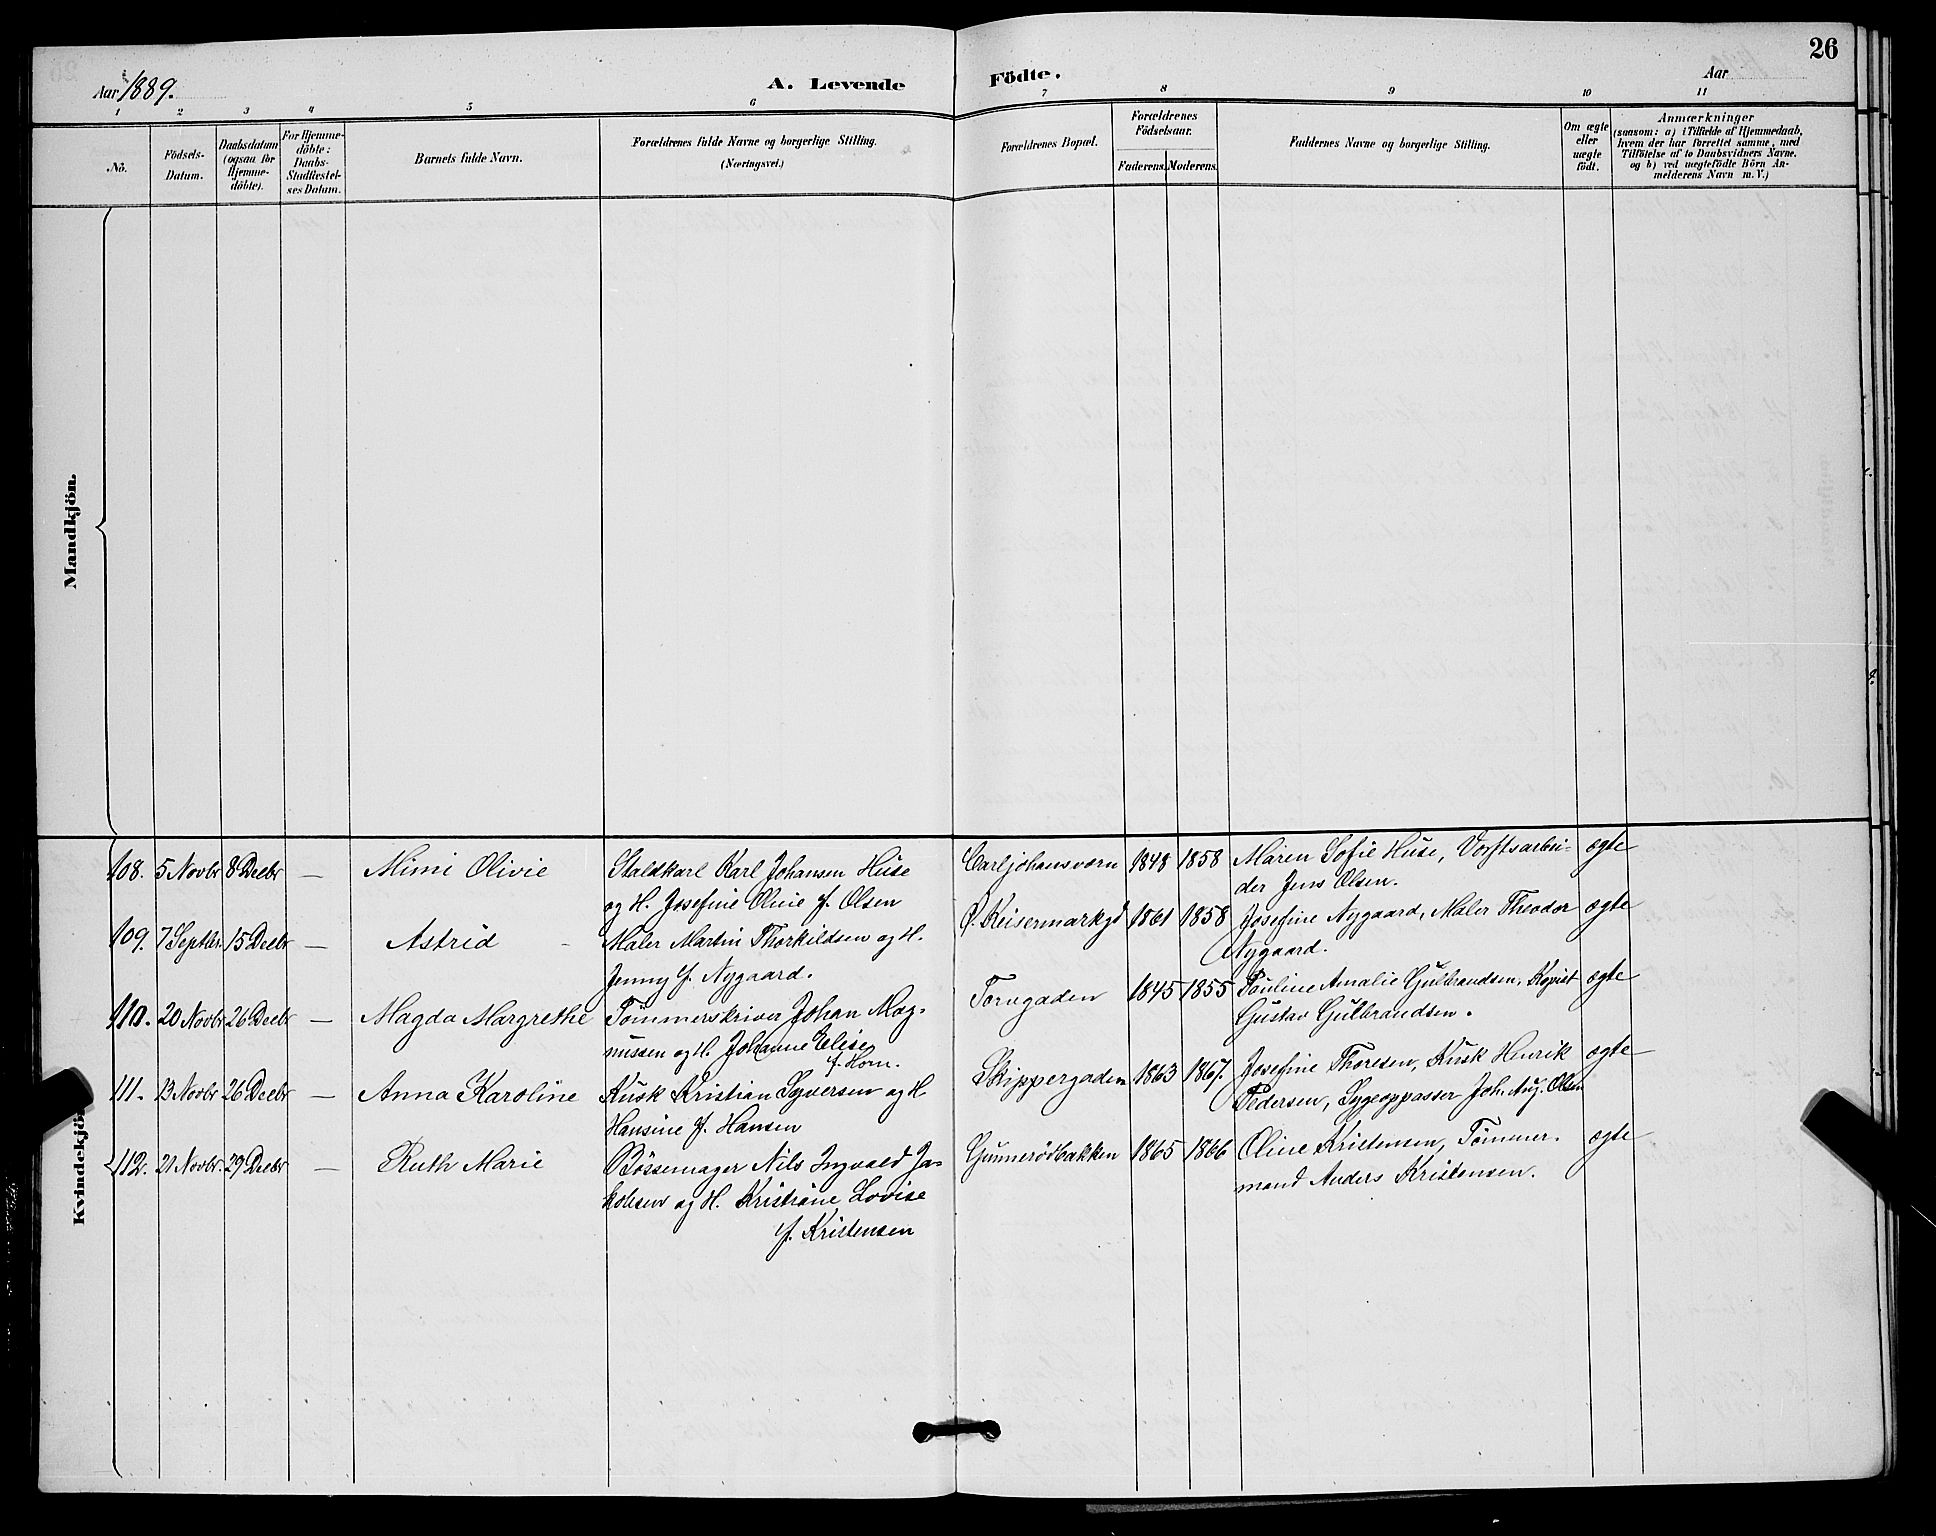 26
Aar 1889.
A. Levende
Födte.
Aar
1
2
3
4
5
6
7
8
9
10
11
No.
Födsels-
Datum.
Daabsdatum
(ogsaa for
Hjemme-
döbte).
For Hjemme-
döbte:
Daabs-
Stadfæstel-
ses Datum.
Barnets fulde Navn.
Forældrenes fulde Navne og borgerlige Stilling.
(Næringsvei.)
Forældrenes Bopæl.
Forældrenes
Födselsaar.
Faderens.
Moderens.
Faddernes Navne og borgerlige Stilling.
Om ægte
eller
uægte
födt.
Anmærkninger
(saasom: a) i Tilfælde af Hjemmedaab,
hvem der har forrettet samme, med
Tilföielse af to Daabsvidners Navne.
og b) ved uægtefödte Börn An-
melderens Navn m. V.)
Mandkjön.
Kvindekjön
108. 5 Novbr 8 Decbr — Mimi Olivie
Staldkarl Karl Johansen Huse
og H. Josefine Oline f. Olsen
Carljohansværn 1848 1858
Maren Sofie Huse, Værftsarbei-
der Jens Olsen.
ægte
109. 7 Septbr. 15 Decbr — Astrid
Maler Martin Thorkildsen og H.
Jenny f. Nygaard.
Ø. Keisermarkgd 1861 1858
Josefine Nygaard, Maler Theodor
Nygaard.
ægte
110. 20 Novbr 26 Decbr — Magda Margrethe
Tömmerskriver Johan Mag-
nussen og H. Johanne Elise
f. Horn.
Torvgaden 1845 1855
Pauline Amalie Gulbrandsen, Kopist
Gustav Gulbrandsen.
ægte
111. 13 Novbr 26 Decbr — Anna Karoline
Kusk Kristian Syversen og H
Hansine f. Hansen
Skippergaden 1863 1867.
Josefine Thoresen, Kusk Henrik
Pedersen, Sygeoppasser Joh. Aug. Olsen
ægte
112. 21 Novbr. 29 Decbr — Ruth Marie
Bössemager Nils Ingvald Ja-
kobsen og H. Kristiane Lovise
f. Kristensen
Gunnerödbakken 1865 1866
Oline Kristensen, Tömmer-
mand Anders Kristensen.
ægte